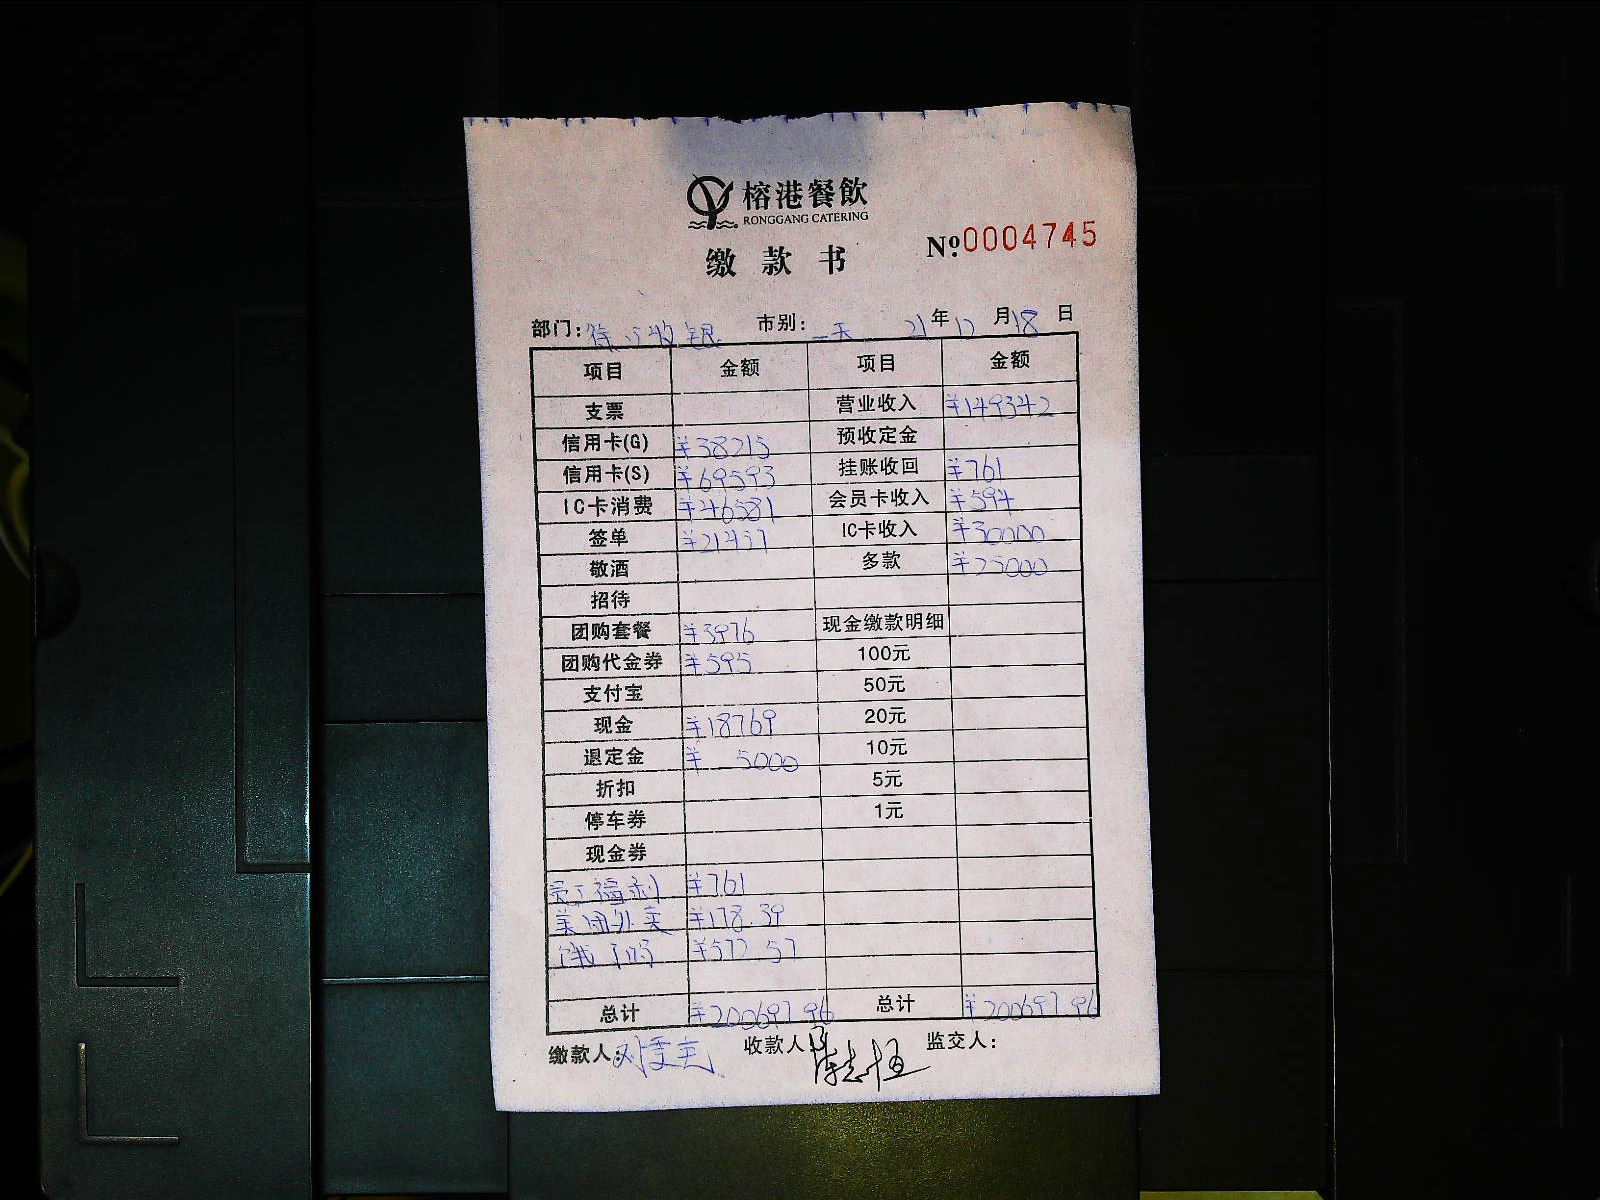 榕港餐飲
RONGGANG CATERING
缴款书
№ 0004745
部门: 市别: 一天 21年12月18日
项目 金额 项目 金额
支票 营业收入 ¥149342
信用卡(G) ¥38215 预收定金
信用卡(S) ¥69593 挂账收回 ¥761
IC卡消费 ¥46581 会员卡收入 ¥594
签单 ¥21437 IC卡收入 ¥30000
敬酒 多款 ¥25000
招待
团购套餐 ¥3976 现金缴款明细
团购代金券 ¥595 100元
支付宝 50元
现金 ¥18769 20元
退定金 ¥ 5000 10元
折扣 5元
停车券 1元
现金券
员工福利 ¥761
美团外卖 ¥178.39
饿了吗 ¥572.57
总计 ¥200697.96 总计 ¥200697.96
缴款人: 收款人: 监交人: